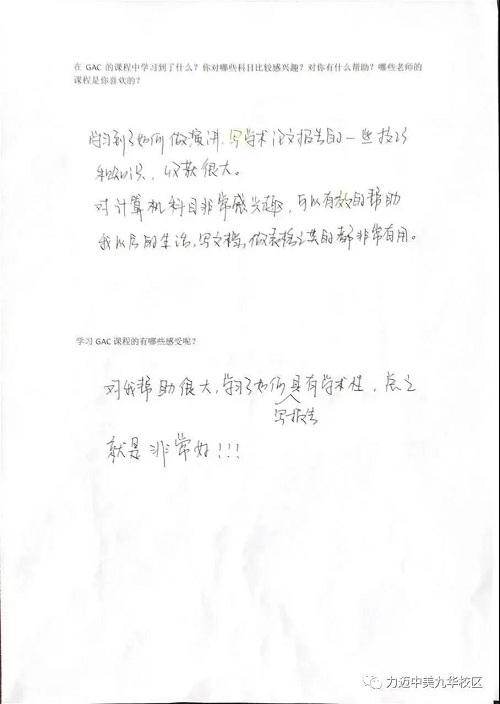 在 GAC 的课程中学习到了什么？你对哪些科目比较感兴趣？对你有什么帮助？哪些老师的
课程是你喜欢的？
学习到了如何做演讲、写学术论文报告的一些技巧
和知识，收获很大。
对计算机科目非常感兴趣，可以有效的帮助
我以后的生活，写文档，做表格之类的都非常有用。
学习 GAC 课程的有哪些感受呢？
对我帮助很大，学习了如何具有学术性，总之
写报告
就是非常好！！！
力迈中美九华校区